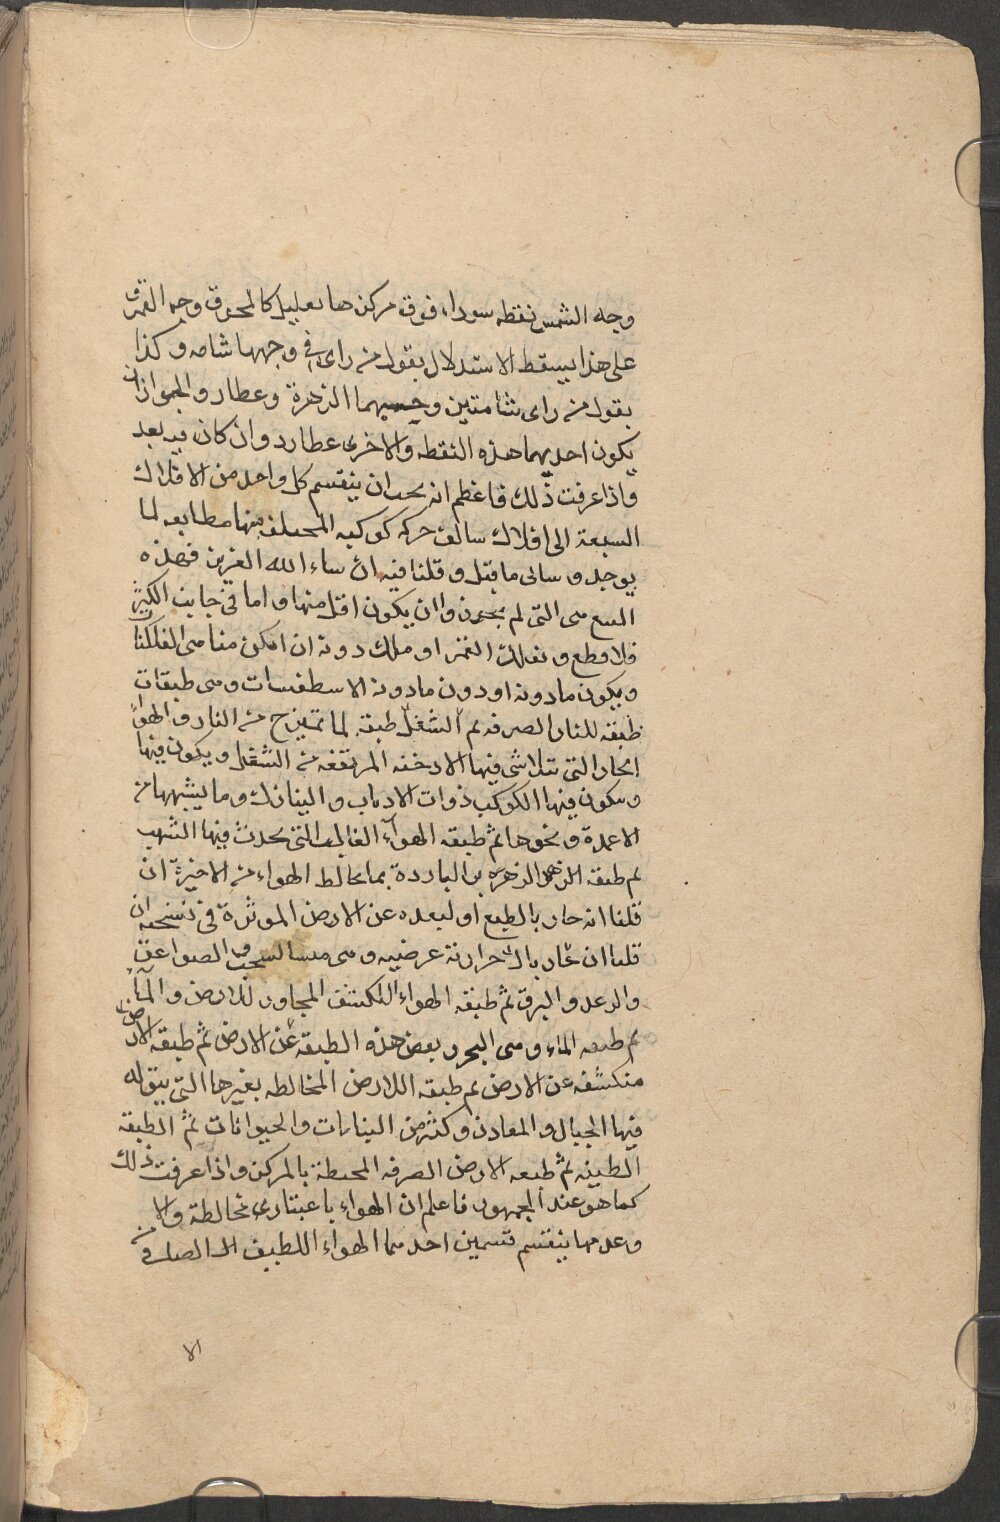 وجه الشمس نقطه سوداء فوق مركزها بقليل كالمحو فى وجه القمر و
على هذا يسقط الاستدلال بقول من راى فى وجهها شامه وكذا
بقول من راى شامتين وحسبهما الزهرة وعطارد والجواز ان
يكون احديهما هذه النقطه والاخرى عطارد وان كان فيه بعد
واذا عرفت ذلك فاعلم انه يجب ان ينقسم كل واحد من الافلاك
السبعة الى افلاك حركه كوكبه المختلف منها مطابعه لما
يوجد وساتى ما قيل وقلنا فيه ان ساء الله العزيز فهذه
السع هى التى لم يجوزوا ان يكون اقل منها واما فى جانب الكثرة
فلا قطع وفلك القمر او ملك دونه ان امكن
ويكون مادونه اودون مادونه الاسطقسات وهى طبقات
طبقه للنار الصرفه ثم الشغل طبقه لما تمتزج من النار والهواء
الحار التى تتلاشى فيها الادخنه المرتفعه من الشغل ويكون فيها
وىكون فيها الكوكب ذوات الاذناب والنيازك وما يشبهها من
الاعمدة ونحوها ثم طبقه الهواء الغالب التى يحدث فيها الشهب
ثم طبقه الزمهريريه الباردة بما يخالط الهواء من الاخيرة ان
قلنا انه حار بالطبع او لبعده عن الارض الموثرة فى تسخنه ان
قلنا ان حرارته عرضيه وهى منسا السحب و الصواعق
والرعد والبرق ثم طبقه الهواء الكثيف المجاور للارض والماء
ثم طبعه الماء وهى البحر وبعض هذه الطبقه عن الارض ثم طبقه الارض
منكشفه عن الارض ثم طبقه اللارض المخالطه بغيرها التى يتولد
فيها الجبال والمعادن وكثير من النباتات والحيوانات ثم الطبقه
الطينه ثم طبعه الارض الصرفه المحيطة بالمركز واذا عرفت ذلك
كما هو عند الجمهور فاعلم ان الهواء باعتبارى مخالطة والا
وعدمها ينقسم قسمين احدهما الهواء اللطيف الصافى من
الا